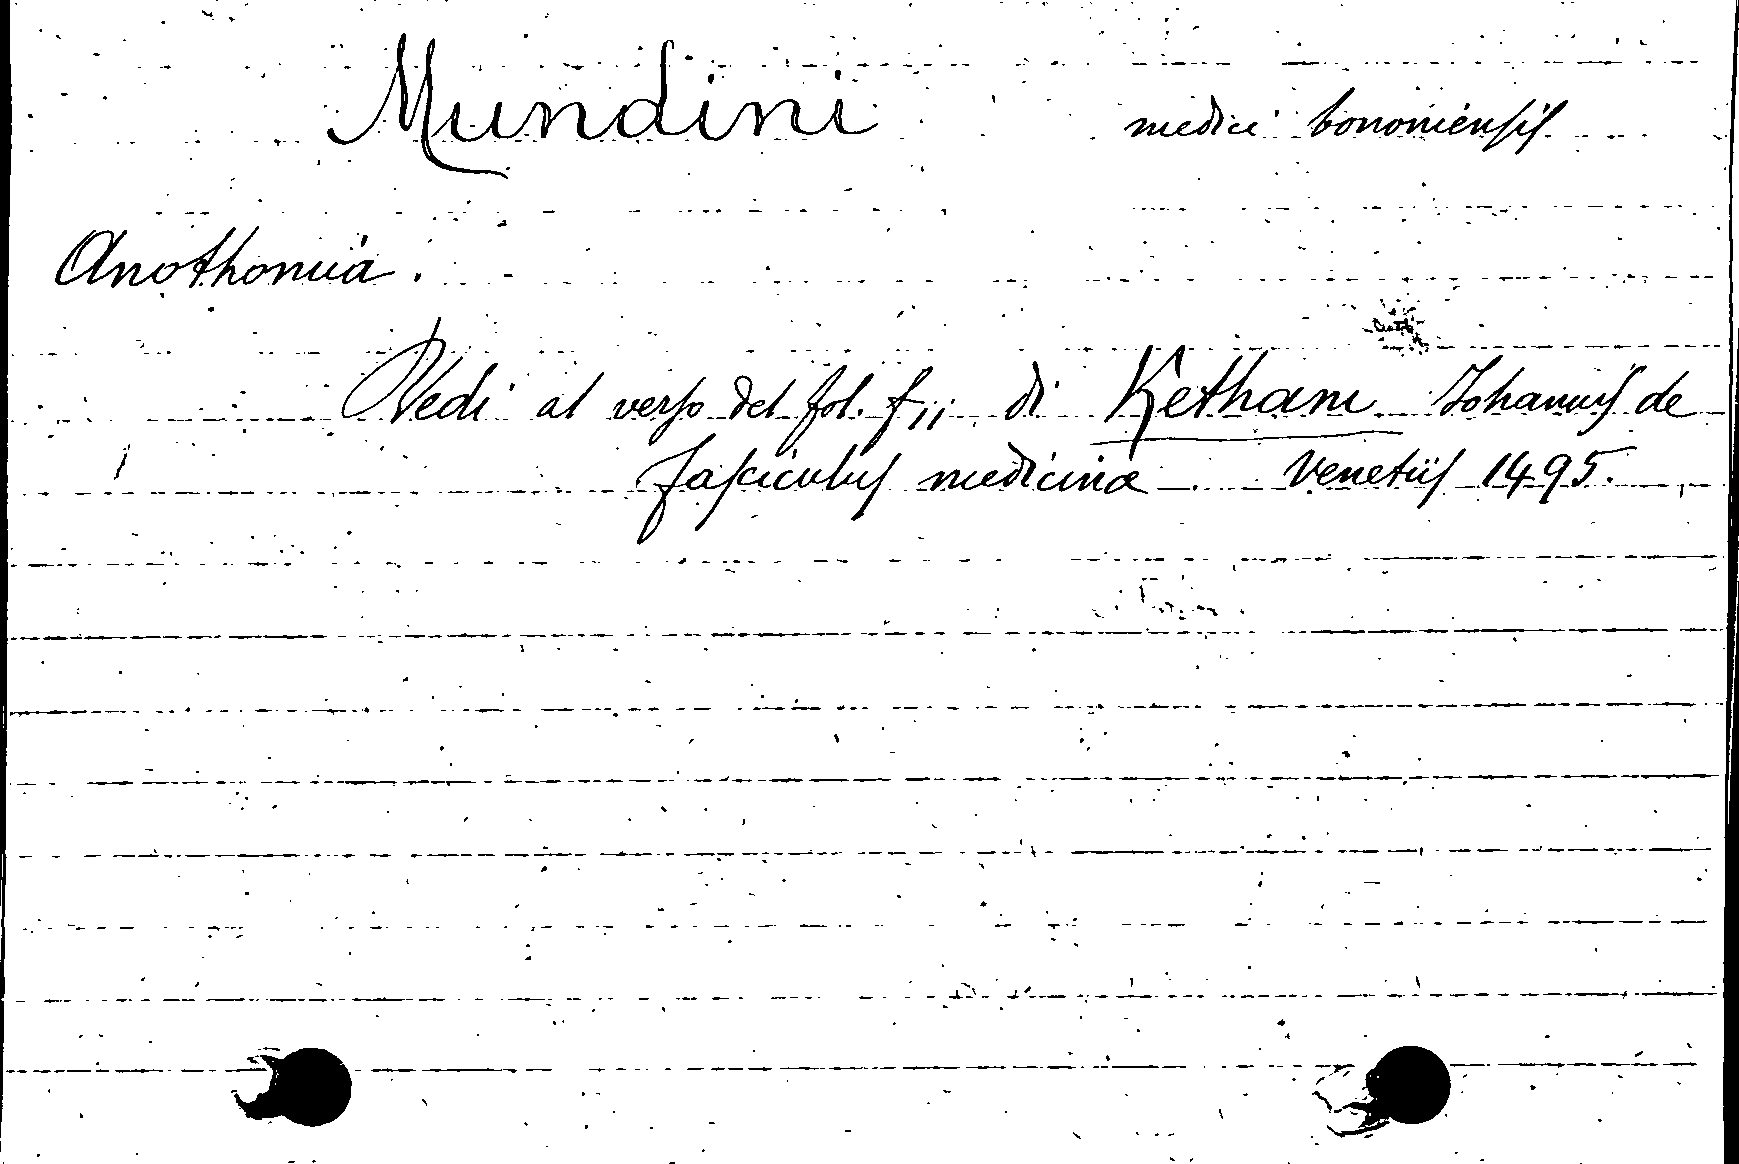 Mundini medici bononiensis
Anothomia.
Vedi al verso del fol. f ii di Ketham Johannis de
fasciculus medicinæ. Venetiis 1495.